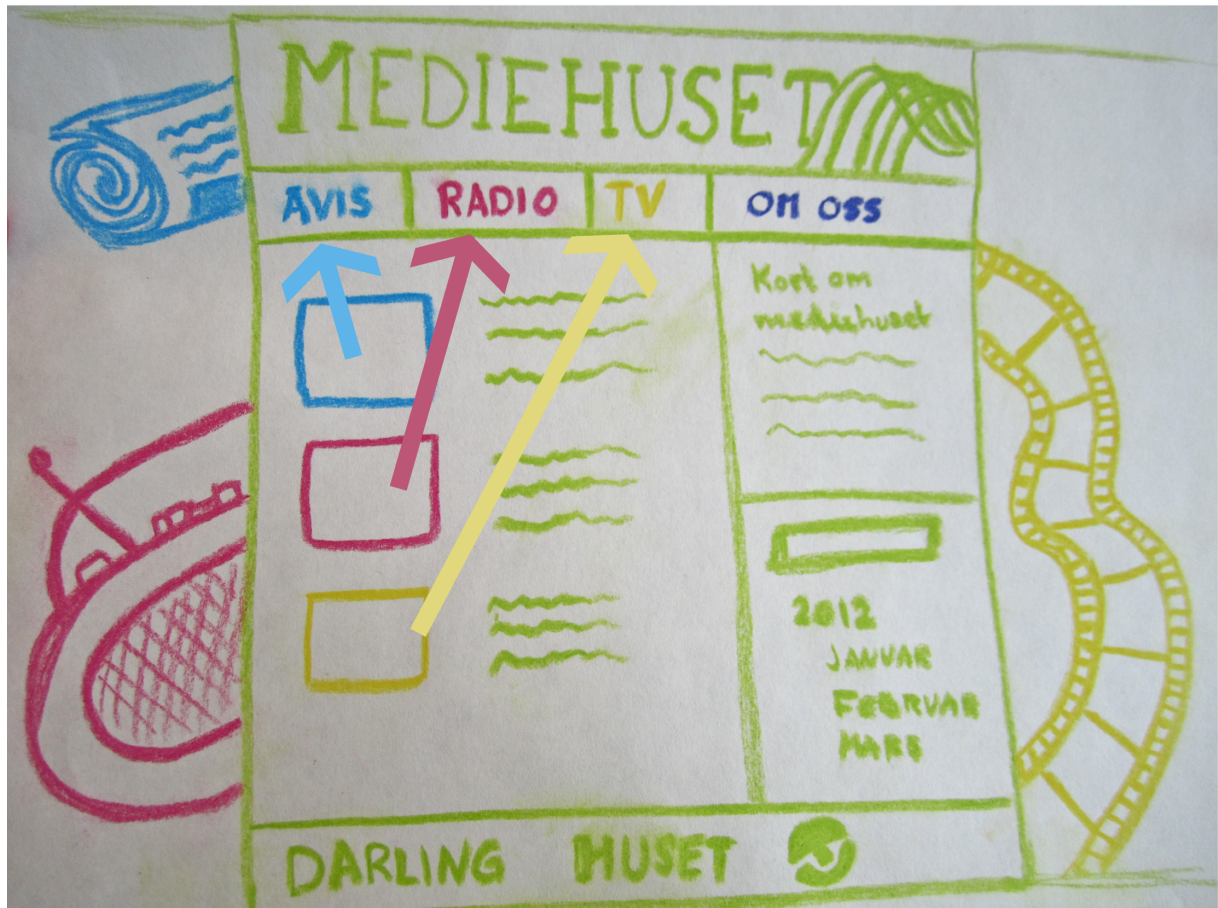 MEDIEHUSET
AVIS RADIO TV OM OSS
Kort om
mediehuset
2012
JANUAR
FEBRUAR
MARS
DARLING HUSET